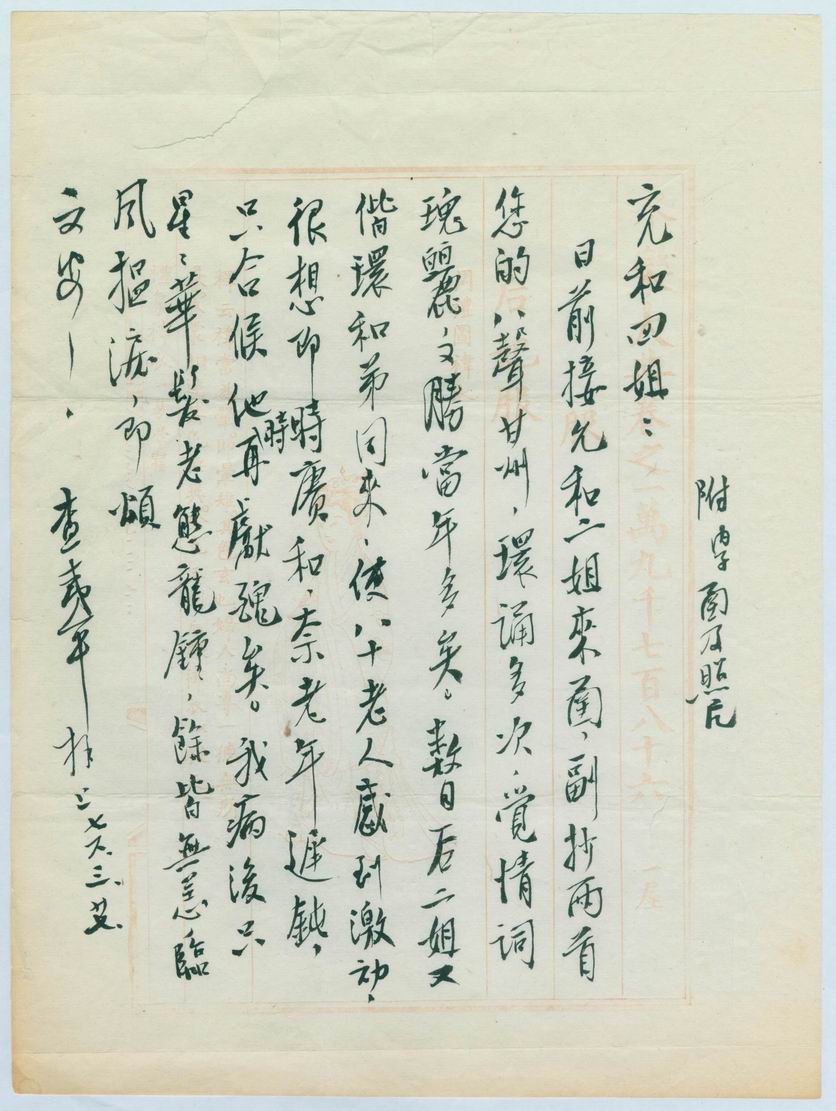 充和四姐：
日前接允和二姐來函，副抄兩首
您的八聲甘州，環誦多次，覺情詞
瑰麗，又勝當年多矣。數日后二姐又
偕環和弟同來，使八十老人感到激动，
很想即時賡和，奈老年遲鈍，
只合候他時再獻醜矣。我病後只
星星華髮老態龍鍾，餘皆無恙，臨
風搵淚，即頌
文安！
查夷平 拜上 七六.三.廿
附 函及照片